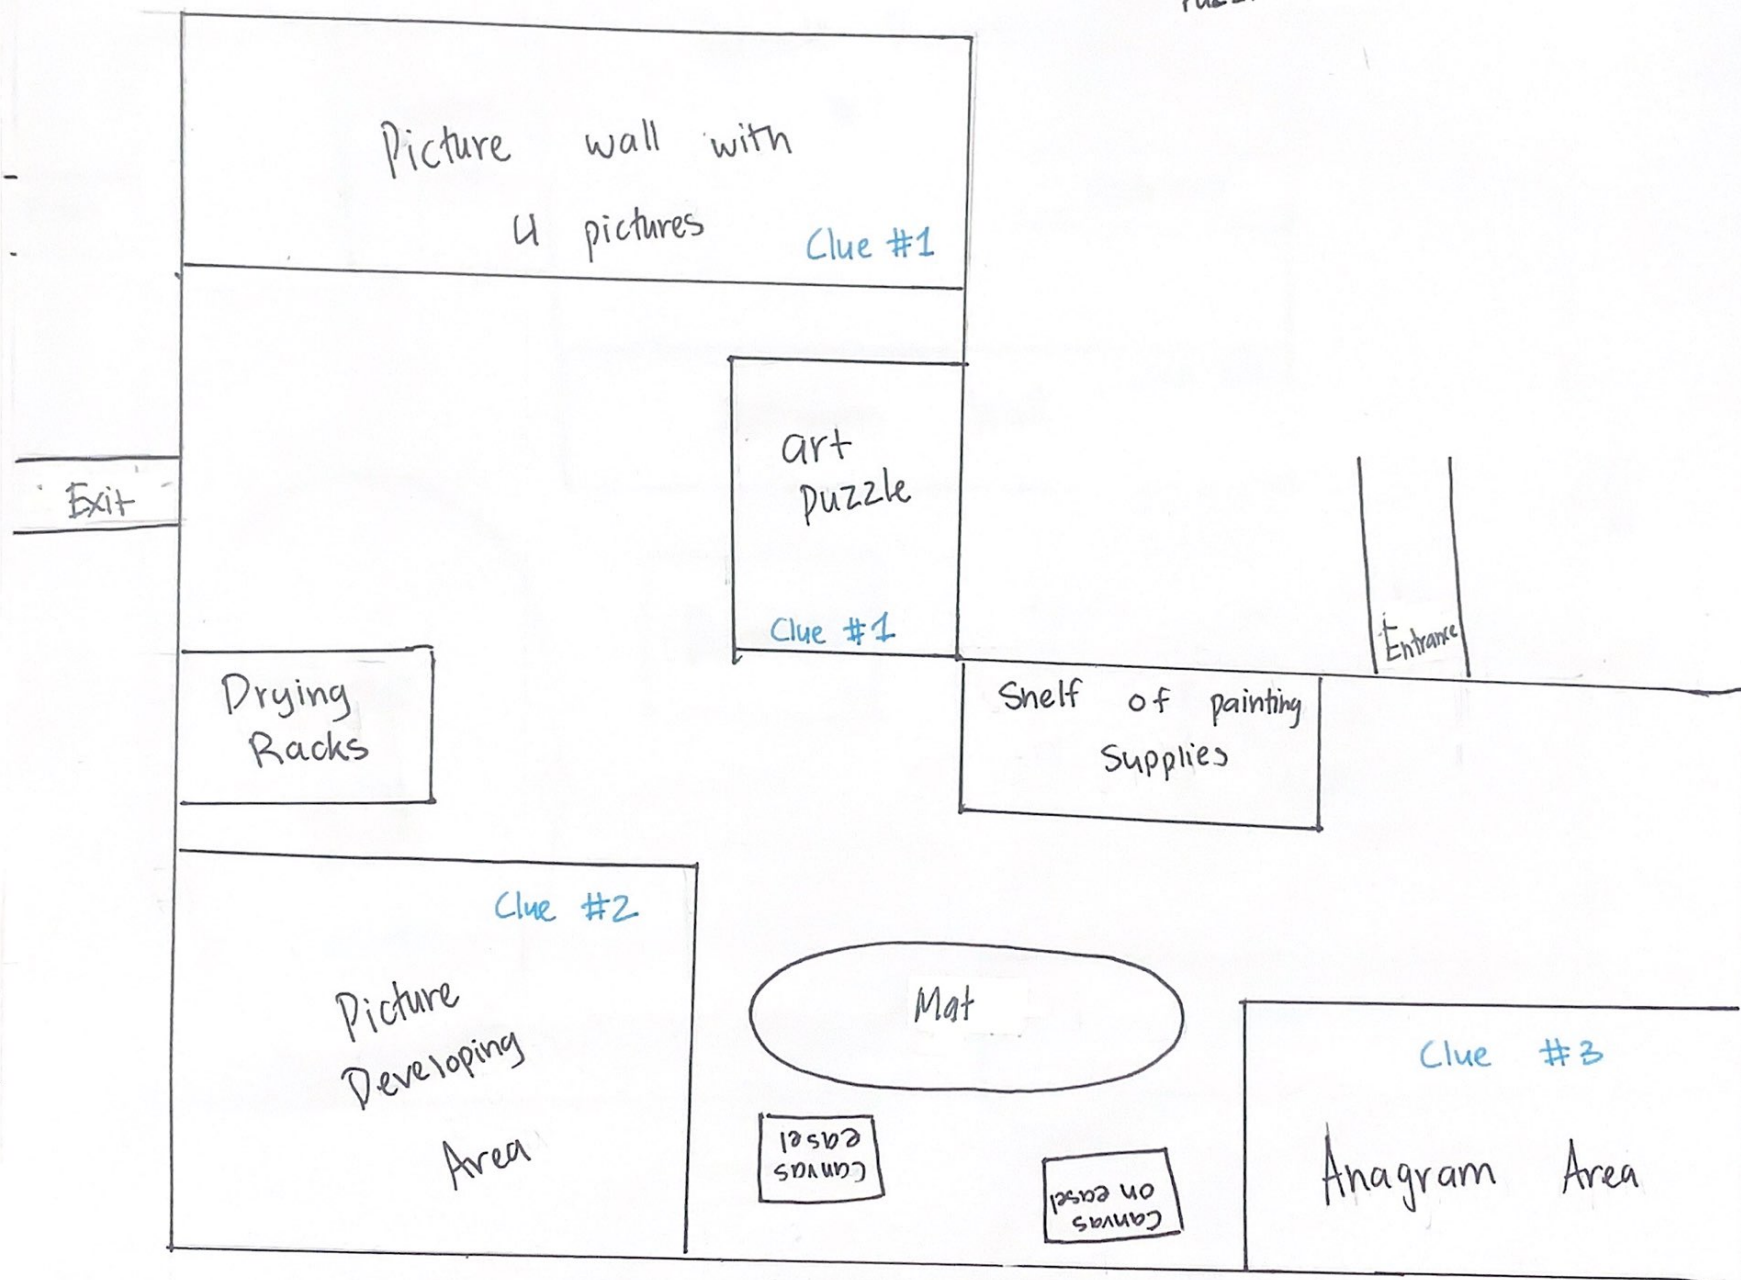 Picture wall with
4 pictures
Clue #1
art
Puzzle
Clue #1
Exit
Entrance
Drying
Racks
Shelf of painting
Supplies
Clue #2
Picture
Developing
Area
Mat
Canvas
easel
Canvas
on easel
Clue #3
Anagram Area